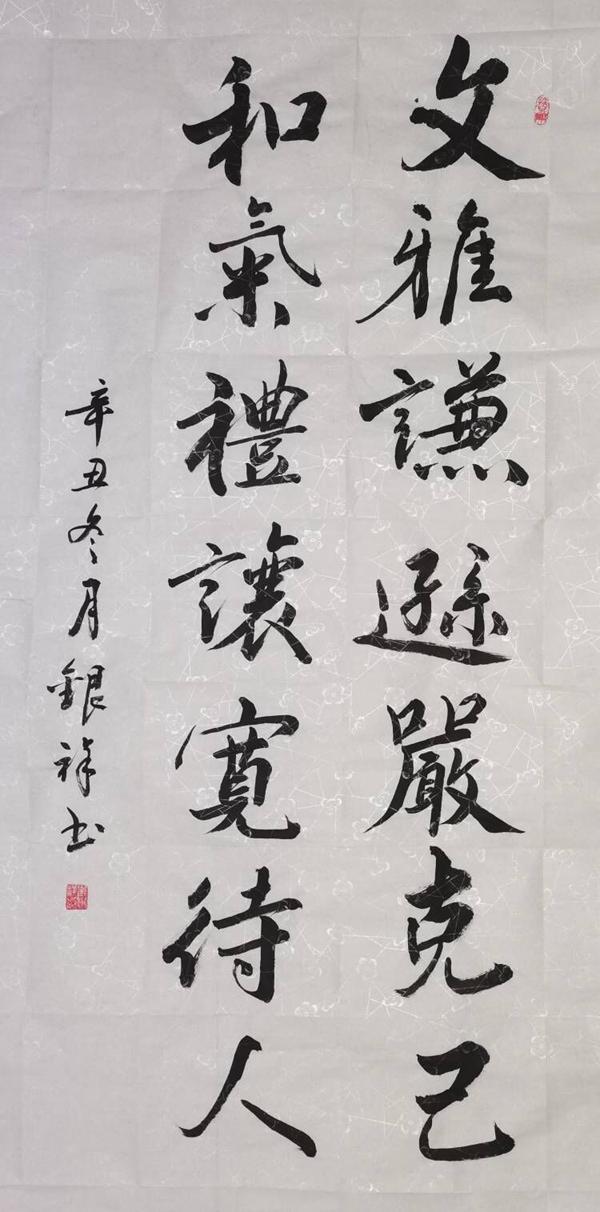 文雅謙遜嚴克己
和氣禮讓寬待人
辛丑冬月銀祥书